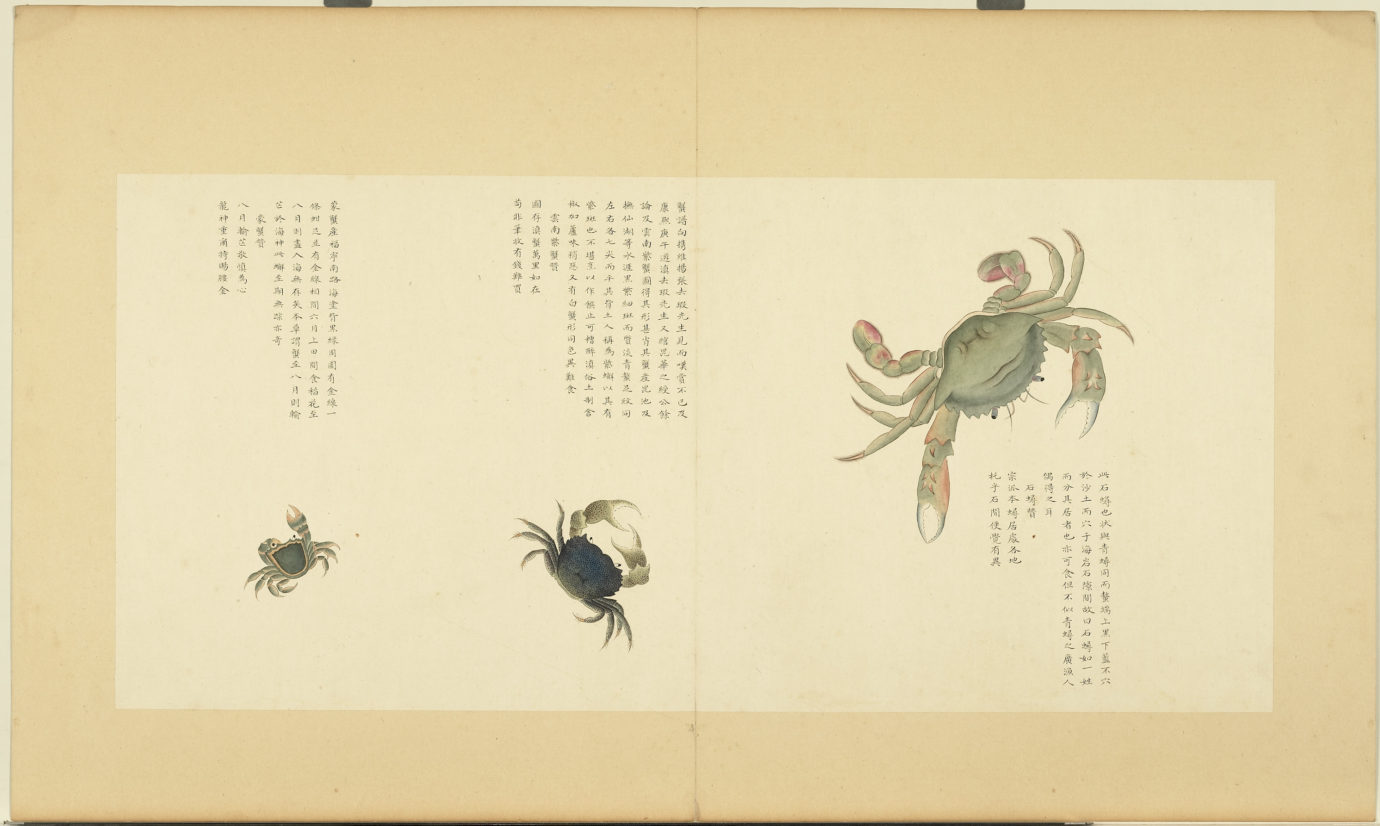 此石蟳也狀與青蟳同而螯端上黑下藍不穴
於沙土而穴于海岩石隙間故曰石蟳如一姓
而分其居者也亦可食但不似青蟳之廣漁人
偶得之耳
石蟳贊
宗派本蟳居處各地
托乎石間便覺有異
蟹譜向携維揚張去瑕先生見而嘆賞不已及
康熙庚午遊滇去瑕先生又昆華之公餘
論及雲南紫蟹圖得其形甚肖其蟹產昆池及
撫仙湖等水涯黑紫細斑而質淡青螯足紋同
左右各七尖而平其背土人稱為紫蠏以其有
紫斑也不堪烹以作饌止可糟醉滇俗土制
椒如蘆味稍又有白蟹形同色異難食
雲南紫蟹贊
圖存滇蟹萬里如在
苟非筆收有錢難買
蟹產福寧南路海塗背黑緣周圍有金線一
條螯足並有金線相間六月上田間食稻花至
八月則盡入海無存矣本草謂蟹至八月則輸
芒於海神此蠏至期無踪亦奇
蟹贊
八月輸芒敬慎為心
龍神重爾特賜腰金